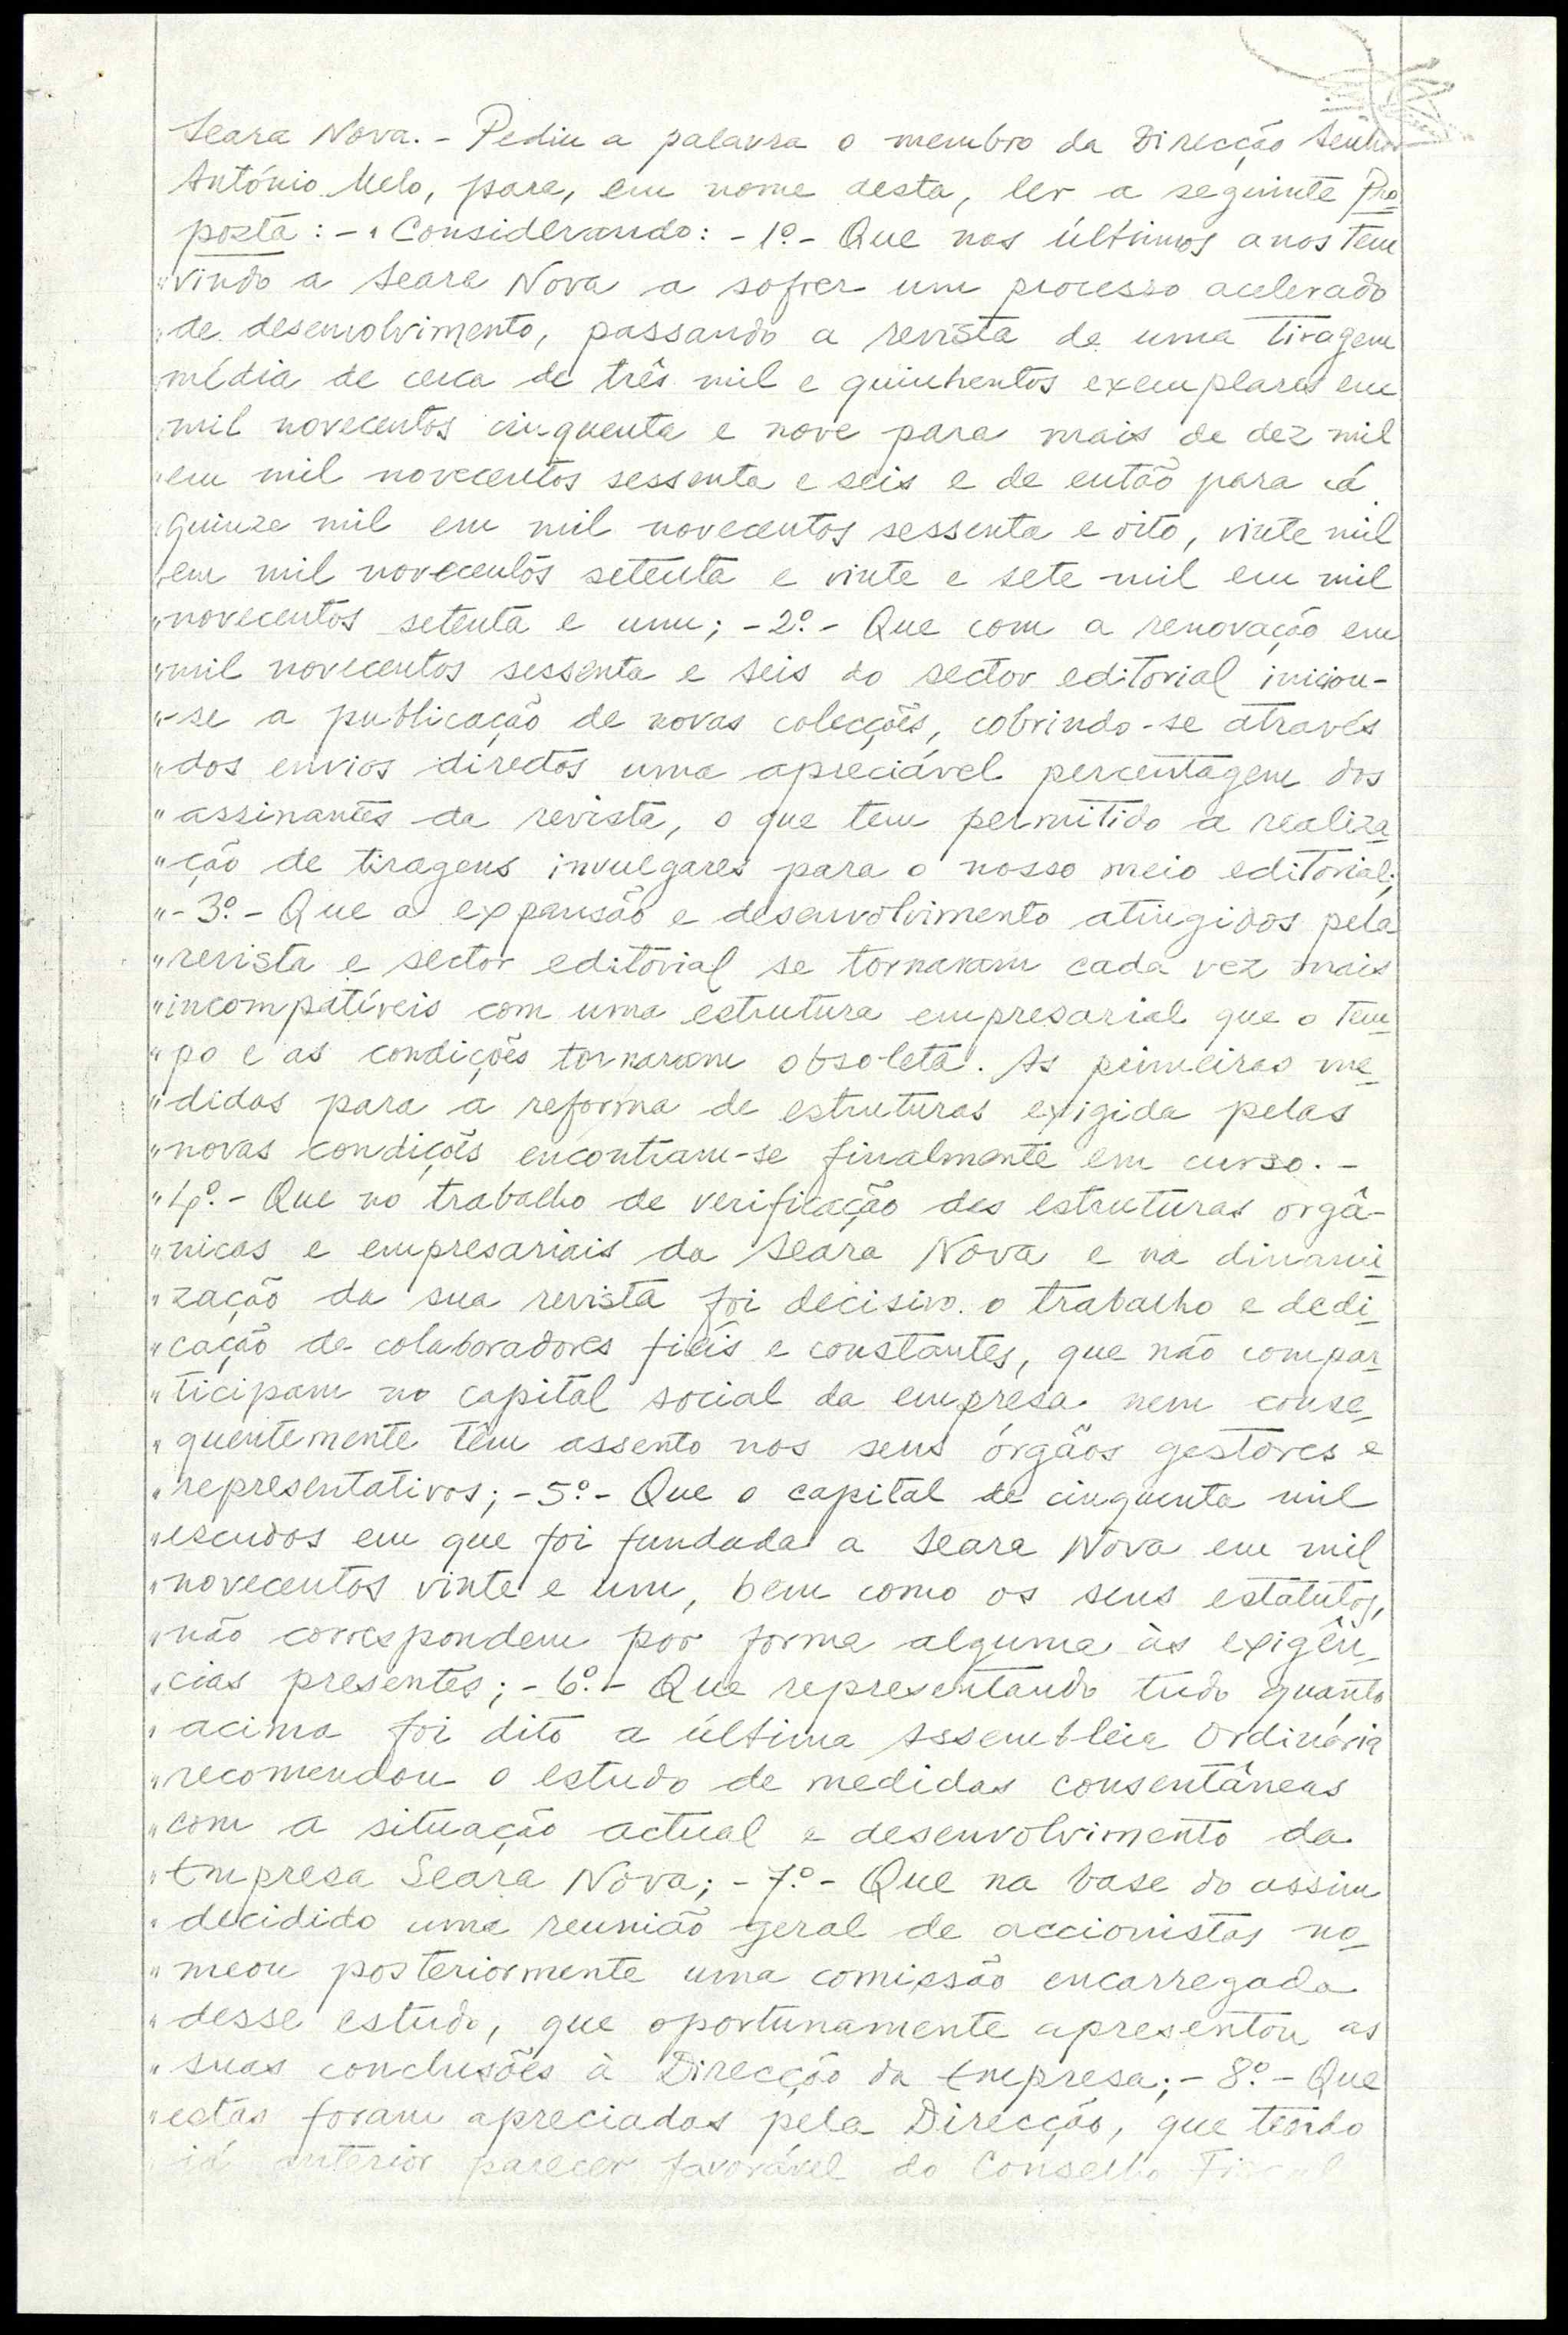 Seara Nova. - Pediu a palavra o membro da Direcção Senhor
António Melo, para, em nome desta, ler a seguinte Pro
posta : - " Considerando: - 1º. - Que nos últimos anos tem
" vindo a Seara Nova a sofrer um processo acelerado
" de desenvolvimento, passando a revista de uma tiragem
" média de cerca de três mil e quinhentos exemplares em
" mil novecentos cinquenta e nove para mais de dez mil
" em mil novecentos sessenta e seis e de então para cá
" quinze mil em mil novecentos sessenta e oito, vinte mil
" em mil novecentos setenta e vinte e sete mil em mil
" novecentos setenta e um; - 2º. - Que com a renovação em
" mil novecentos sessenta e seis do sector editorial iniciou-
" -se a publicação de novas colecções, cobrindo-se através
" dos envios directos uma apreciável percentagem dos
" assinantes da revista, o que tem permitido a realiza
" ção de tiragens invulgares para o nosso meio editorial;
" - 3º. - Que a expansão e desenvolvimento atingidos pela
" revista e sector editorial se tornaram cada vez mais
" incompatíveis com uma estrutura empresarial que o tem
" po e as condições tornaram obsoleta. As primeiras me
" didas para a reforma de estruturas exigida pelas
" novas condições encontram-se finalmente em curso. -
" 4º. - Que no trabalho de verificação das estruturas orgâ-
" nicas e empresariais da Seara Nova e na dinami
" zação da sua revista foi decisivo o trabalho e dedi
" cação de colaboradores fiéis e constantes, que não compar
" ticipam no capital social da empresa nem conse
" quentemente têm assento nos seus órgãos gestores e
" representativos; - 5º. - Que o capital de cinquenta mil
" escudos em que foi fundada a Seara Nova em mil
" novecentos vinte e um, bem como os seus estatutos,
" não correspondem por forma alguma às exigên
" cias presentes; - 6º. - Que representando tudo quanto
" acima foi dito a última Assembleia Ordinária
" recomendou o estudo de medidas consentâneas
" com a situação actual e desenvolvimento da
" Empresa Seara Nova; - 7º. - Que na base do assim
" decidido uma reunião geral de accionistas no
" meou posteriormente uma comissão encarregada
" desse estudo, que oportunamente apresentou as
" suas conclusões à Direcção da Empresa; - 8º. - Que
" estas foram apreciadas pela Direcção, que tendo
já anterior parecer favorável do Conselho Fiscal